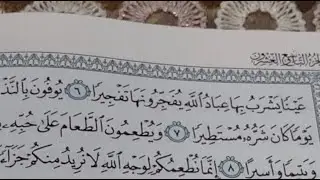 عَيْنًا يَشْرَبُ بِهَا عِبَادُ ٱللَّهِ يُفَجِّرُونَهَا تَفْجِيرًا ٦ يُوفُونَ بِٱلنَّذْ
يَوْمًا كَانَ شَرُّهُۥ مُسْتَطِيرًا ٧ وَيُطْعِمُونَ ٱلطَّعَامَ عَلَىٰ حُبِّهِۦ
وَيَتِيمًا وَأَسِيرًا ٨ إِنَّمَا نُطْعِمُكُمْ لِوَجْهِ ٱللَّهِ لَا نُرِيدُ مِنكُمْ جَزَآءً